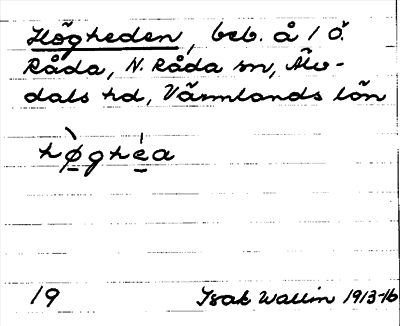 Högheden, beb. å 1 Ö.
Råda, N. Råda sn, Älv-
dals hd, Värmlands län
hø̀ghéa
19 Isak Wallin 1913-16